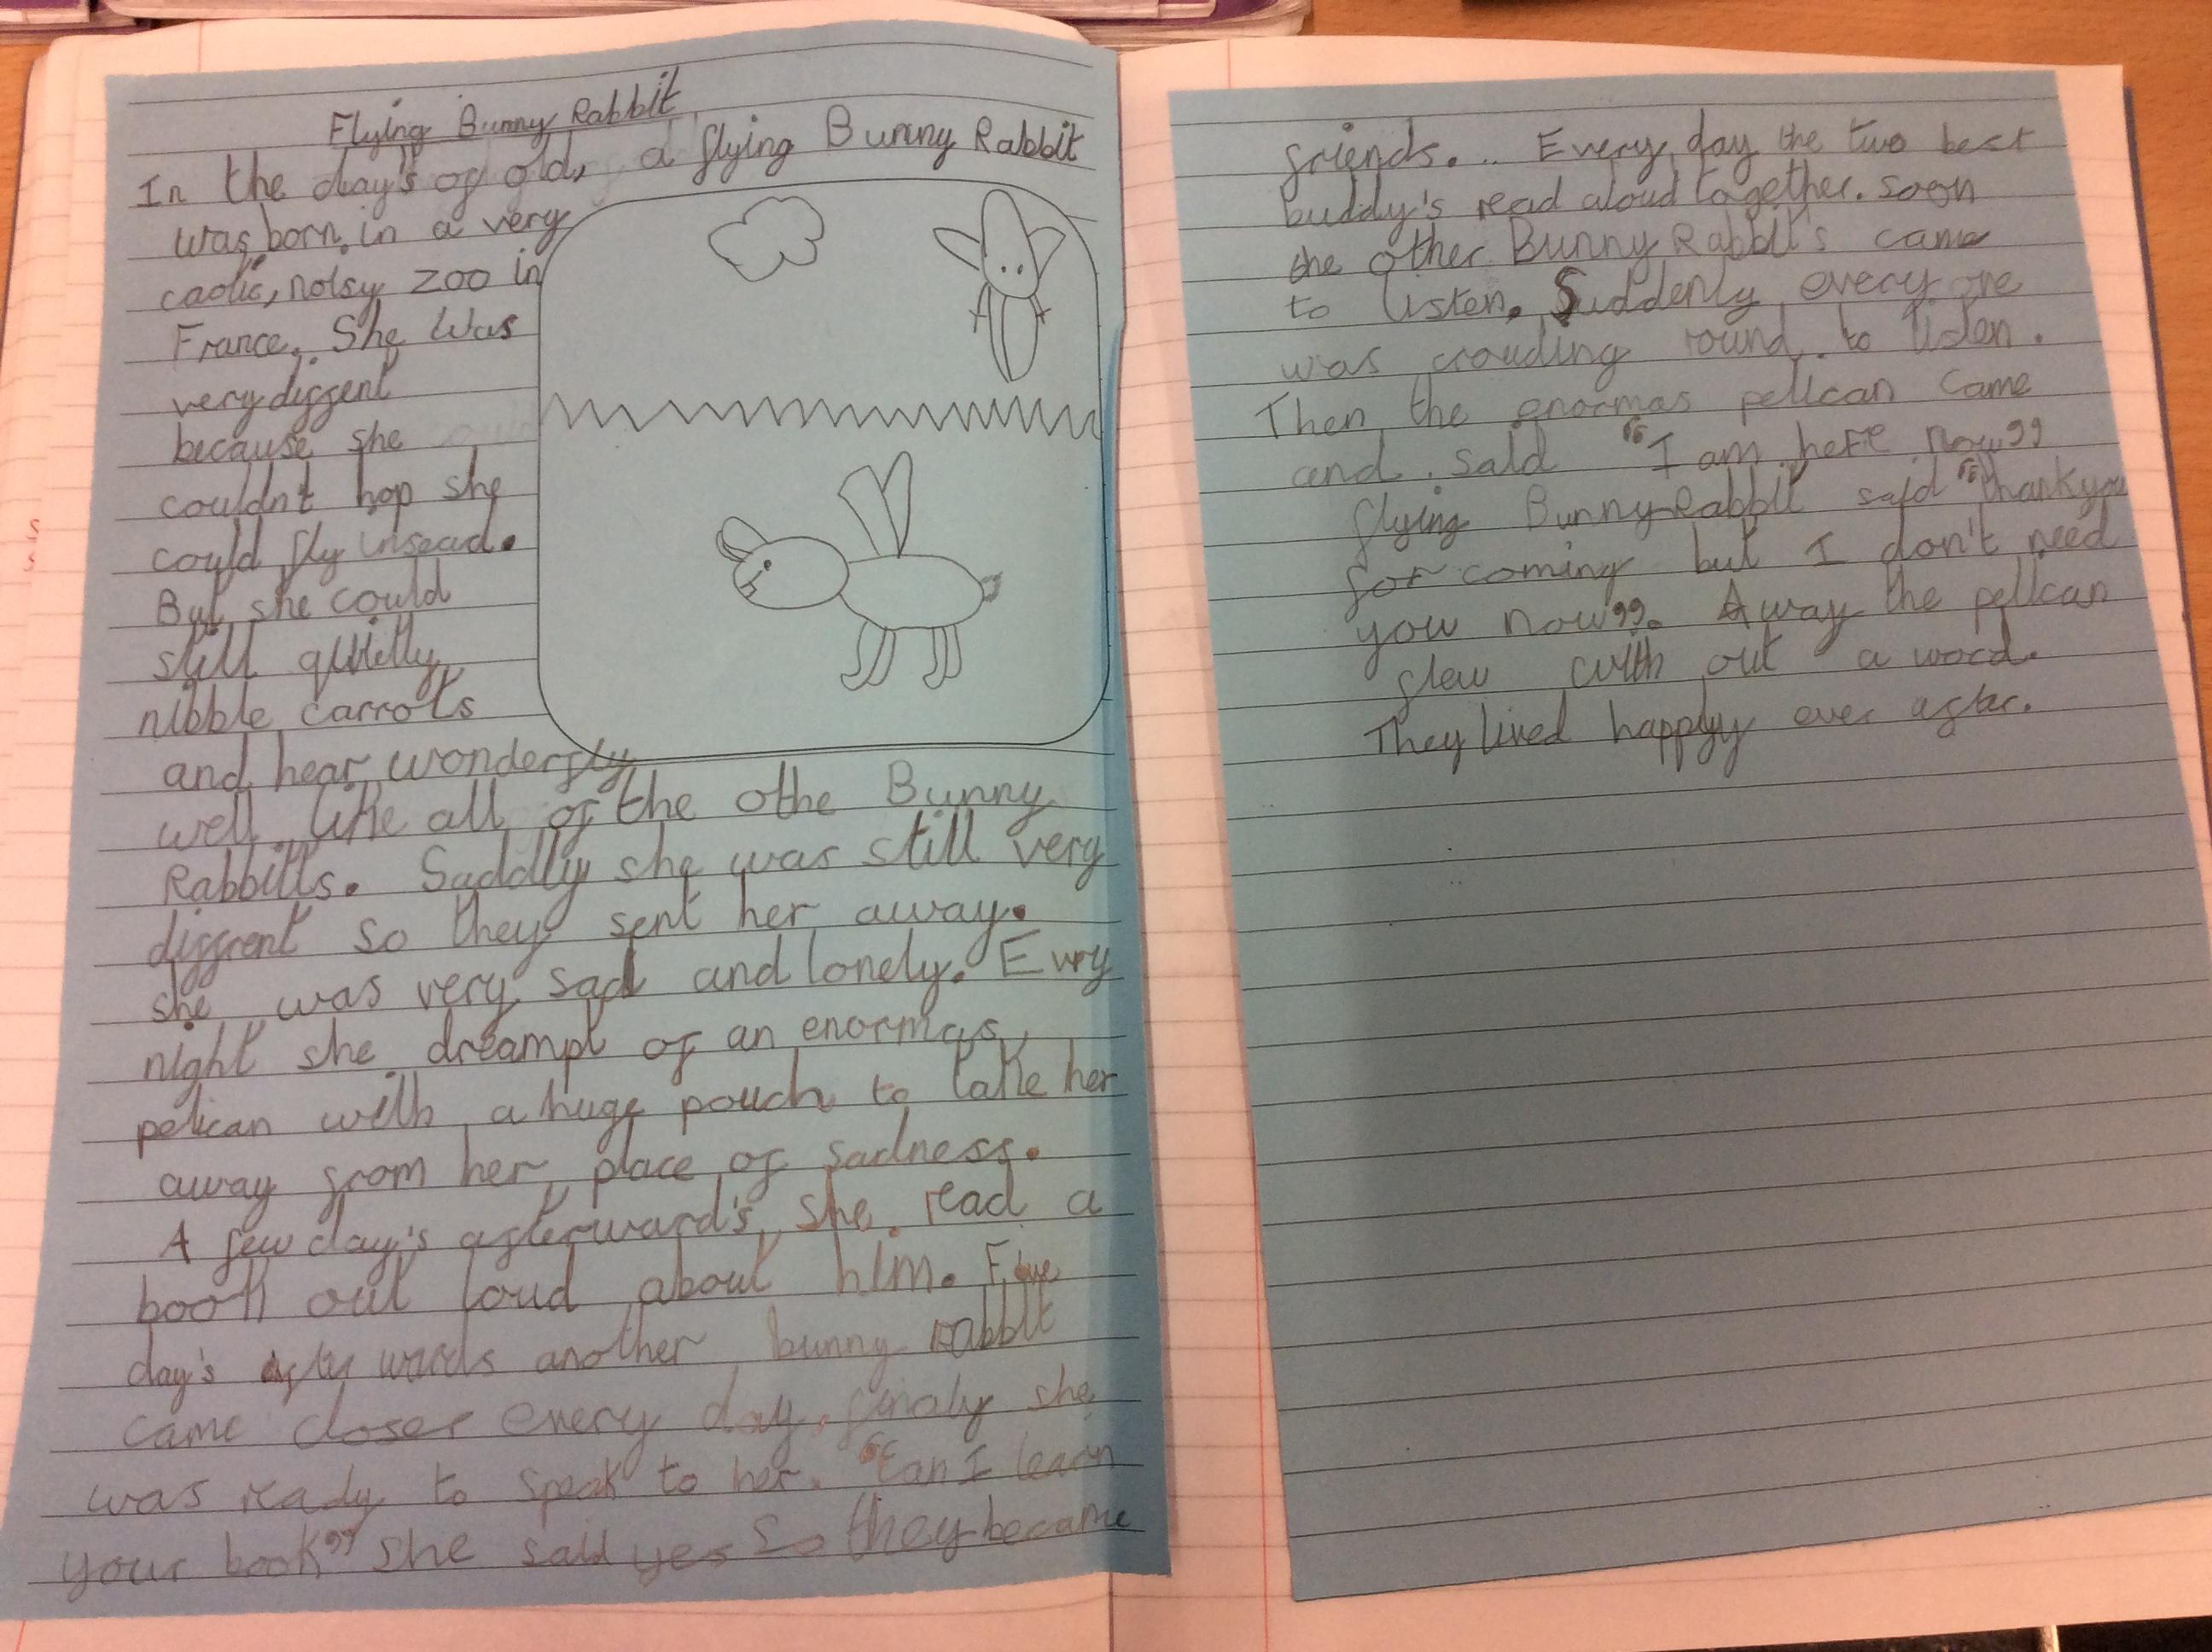 Flying Bunny Rabbit
In the day's of old, a flying Bunny Rabbit
was born in a very
caotic, noisy zoo in
France. She was
very diffent
because she
couldn't hop she
could fly insead.
But she could
still quietly
nibble carrots
and hear wonderfly
well like all of the othe Bunny
Rabbits. Saddly she was still very
diffrent so they sent her away.
she was very sad and lonely. Evry
night she dreampt of an enormas
pelican with a huge pouch to take her
away from her place of sadness.
A few day's afterward's she read a
book out loud about him. Five
day's after wards another bunny rabbit
came closer every day. finaly she
was ready to speak to her. "Can I learn
your book" she said yes so they became
friends... Every day the two best
buddy's read aloud together. soon
the other Bunny Rabbit's came
to listen. Suddenly every one
was crouding round to listen.
Then the enormas pelican came
and said "I am here now"
flying Bunny Rabbit said "thankyou
for coming but I don't need
you now". Away the pelican
flew with out a word.
They lived happyly ever after.